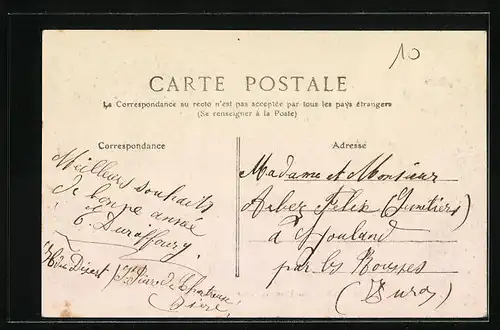 10
CARTE POSTALE
La Correspondance au recto n'est pas acceptée par tous les pays étrangers
(Se renseigner à la Poste)
Correspondance
Adresse
Meilleurs souhaits
de bonne année
E. Duraffourg
du Désert St Pierre de Chartreuse
Isère
Madame et Monsieur
Arbez Felix
à
par les Rousses
(Jura)